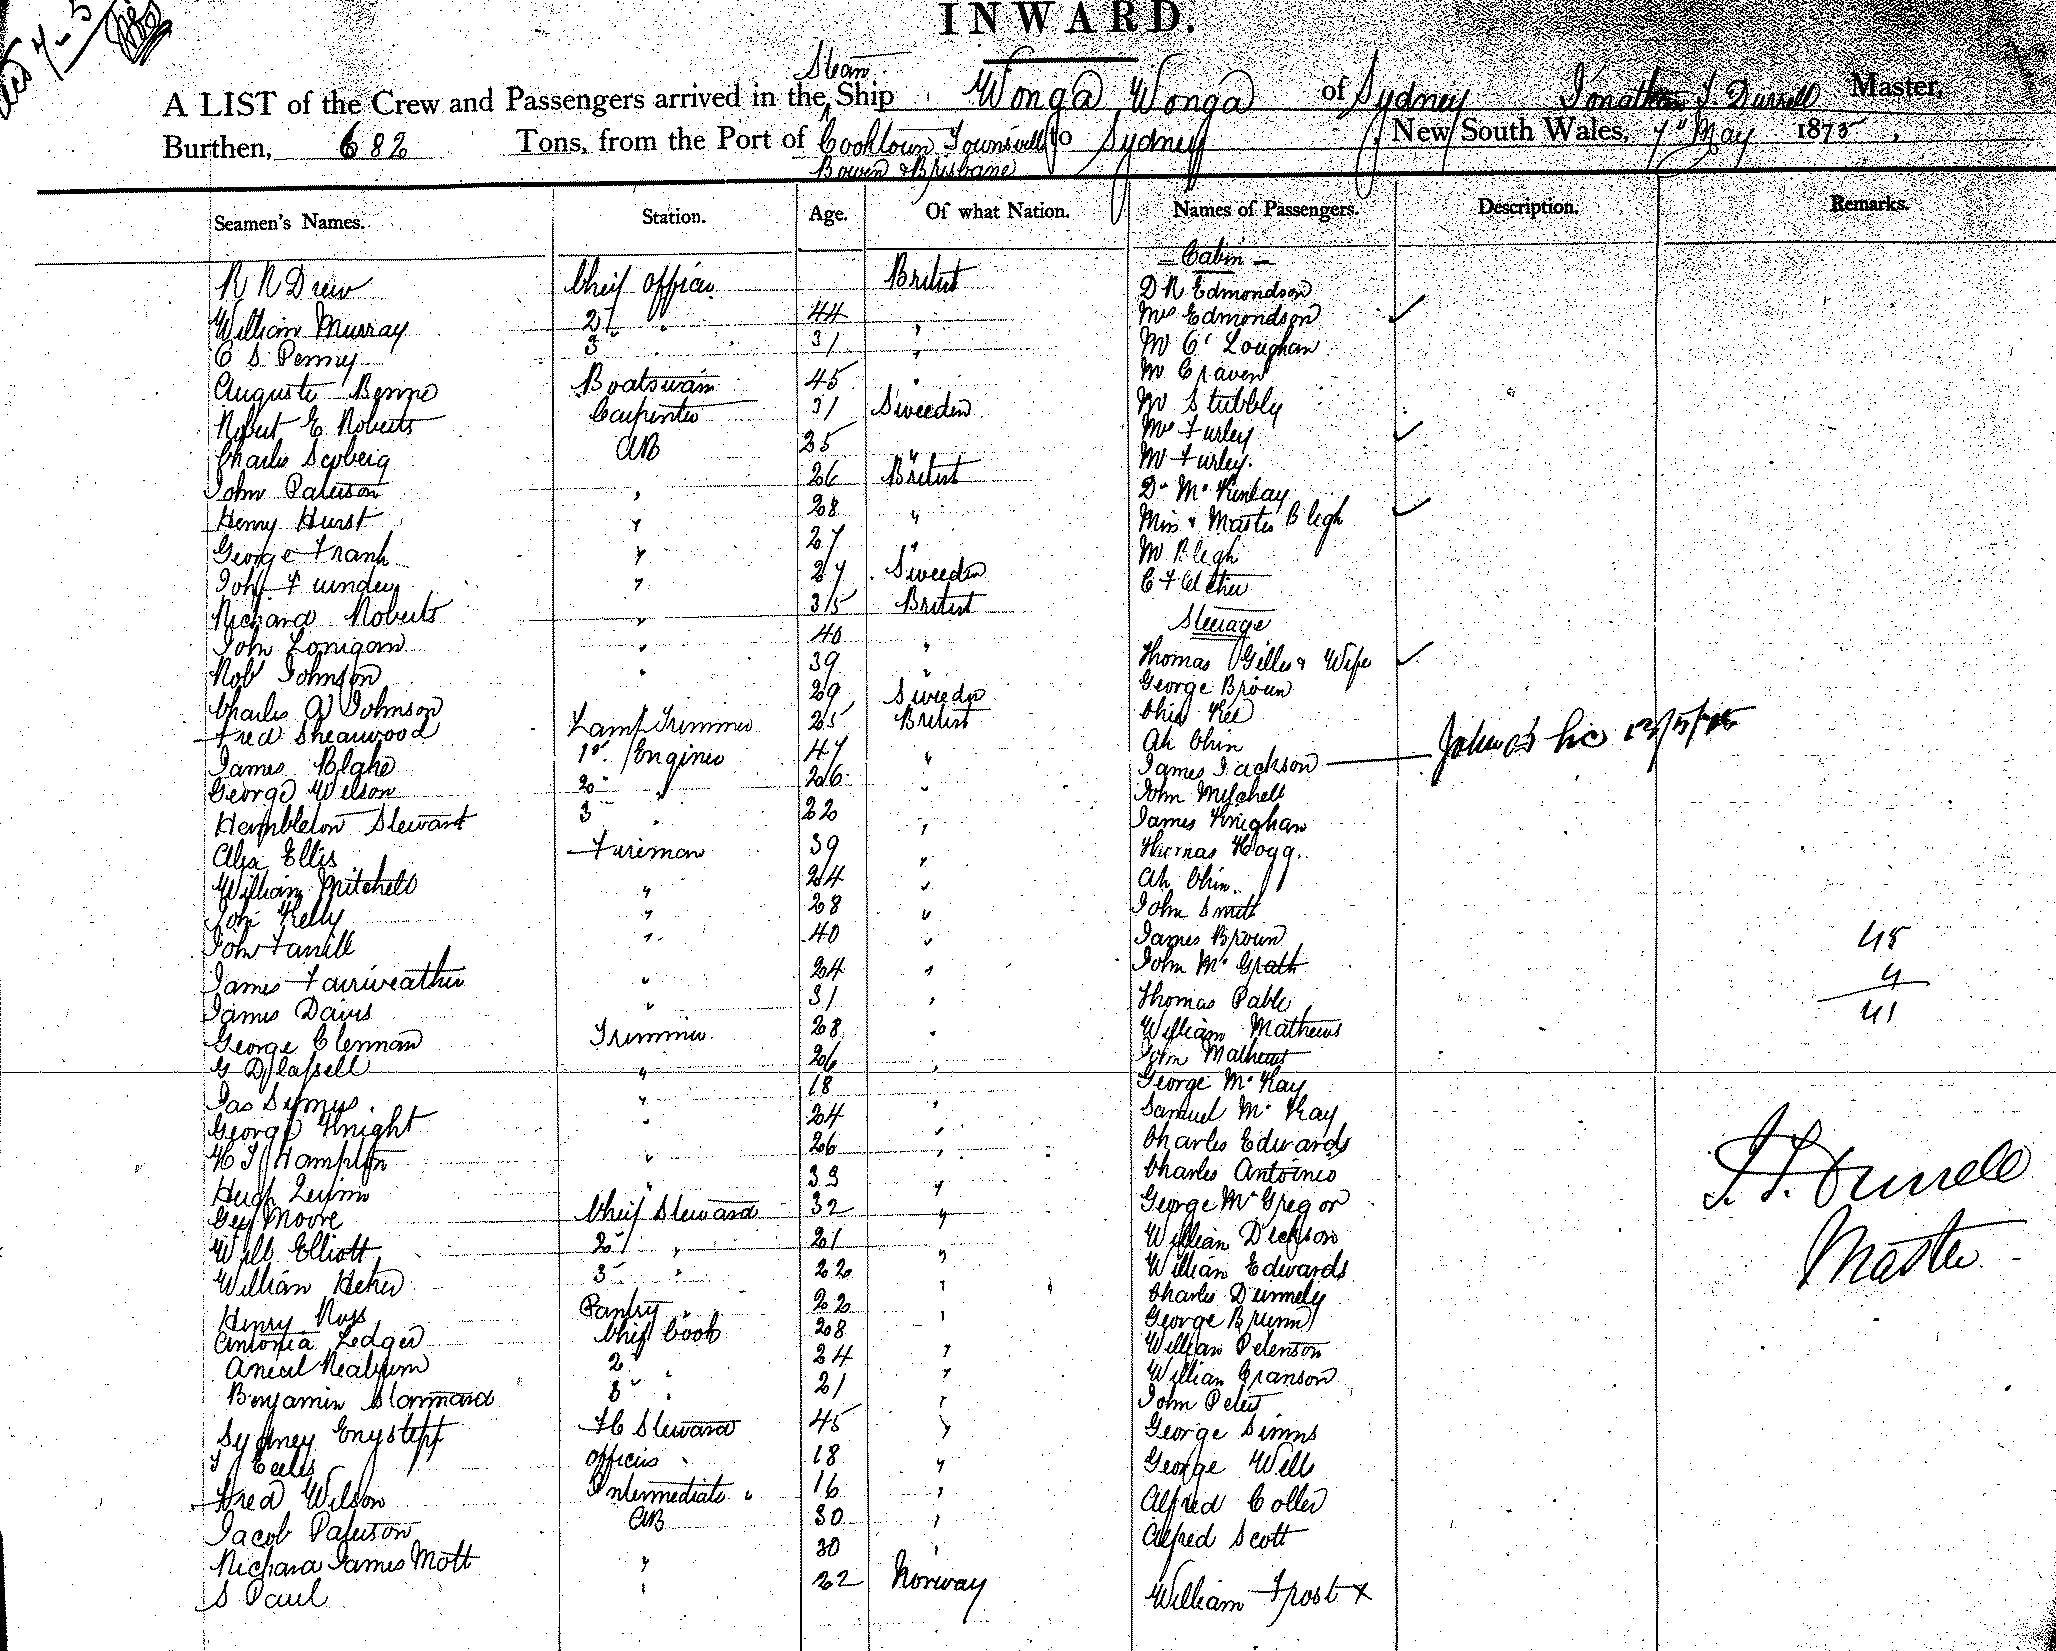 INWARD.
Steam
A LIST of the Crew and Passengers arrived in the Ship Wonga Wonga of Sydney Jonathan J. Durrell Master,
Burthen, 682 Tons, from the Port of Cooktown Townsville to Sydney, New South Wales, 7th May 1875,
Bowen & Brisbane
Seamen's Names. Station. Age. Of what Nation. Names of Passengers. Description. Remarks.
— Cabin —
R R Drew Cheif Officer British D R Edmondson
William Murray 2 " 44 " Mrs Edmondson ✓
C S Penny 3 " 31 " Mr C' Loughan
Auguste Benne Boatswain 45 " Mr Craven
Robert E Roberts Carpenter 31 Sweeden Mr Stubbly
Charles Scoberg AB 25 " Mrs Furley ✓
John Paterson " 26 British Mr Furley.
Henry Hurst " 28 " Dr McKinlay
George Frank " 27 " Miss & Master Bligh ✓
John " 27 Sweeden Mr Bligh
Richard Roberts " 35 British C F
Steerage
John Lonigan " 40 " Thomas Gilles & Wife ✓
Rob Johnson " 39 " George Brown
Charles A Johnson 29 Sweeden Kee
Fred Shearwood Lamp Trimmer 25 British Ah Chin
James Blake 1st Engineer 47 " James Jackson
George Wilson 2 " 26 " John Mitchell
Hambleton Stewart 3 " 22 " James Knighan
Alex Ellis Fireman 39 " Thomas Hogg.
William Mitchell " 24 " Ah Chin.
John Kelly " 28 " John Smith
John Farrill " 40 " James Brown 45
James Fairweather " 24 " John McGrath 4
James Davis " 31 " Thomas Pable 41
George Clennan Trimmer 28 " William Mathews
G D " 26 " John Mathews
Jas " 18 " George McKay
George Knight " 24 " Samuel McKay
H J Hampton " 26 " Charles Edwards
Hugh Quinn " 33 " Charles Antoinio
Geo Moore Cheif Steward 32 " George McGregor J. J. Durrell
Will Elliott 2 " 21 " William Dickson Master
William 3 " 22 " William Edwards
Henry Ross Pantry " 22 " Charles Dunnely
Antonia Ledger Cheif Cook 28 " George Brunn
2 " 24 " William Petenson
Benjamin Stannard 3 " 21 " William Cranson
Sydney FC Steward 45 " John Peter
J Eccles Officers " 18 " George Simms
Fred Wilson Intermediate " 16 " George Wells
Jacob Paterson AB 30 " Alfred Coller
Richard James Mott " 30 " Alfred Scott
S Paul " 22 Norway William Frost x